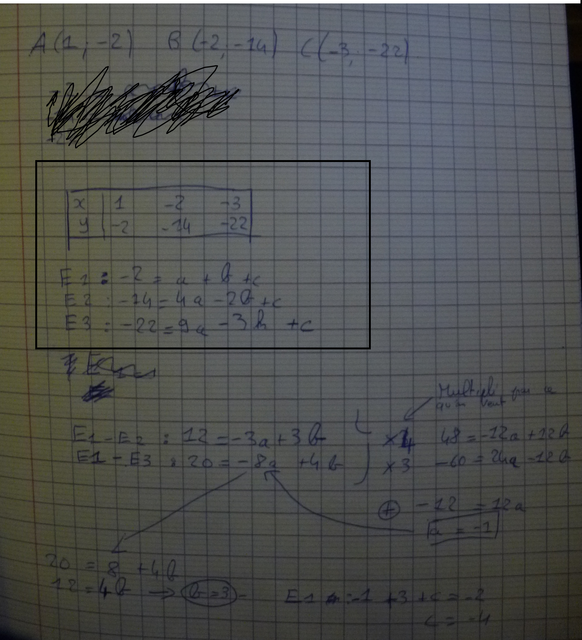 A(1; -2) B(-2; -14) C(-3; -22)
x | 1 -2 -3
y | -2 -14 -22
E1 : -2 = a + b + c
E2 : -14 = 4a - 2b + c
E3 : -22 = 9a - 3b + c
Multiplié par a
E1 - E2 : 12 = -3a + 3b
×4 48 = -12a + 12b
E1 - E3 : 20 = -8a + 4b
×3 -60 = 24a - 12b
⊕ -12 = 12a
a = -1
20 = 8 + 4b
12 = 4b → b = 3
E1 : -1 + 3 + c = -2
c = -4